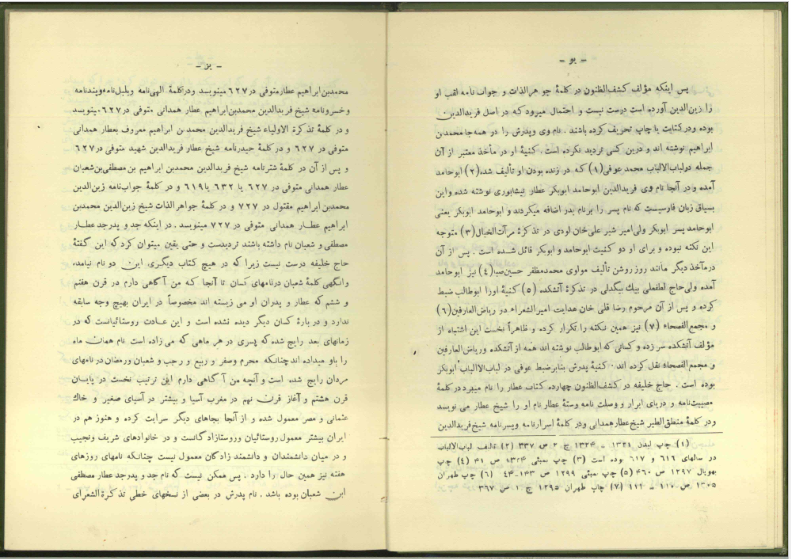 - یو -
پس اینکه مؤلف کشف‌الظنون در کلمهٔ جوهرالذات و جواب نامه لقب او
را زین‌الدین آورده است درست نیست و احتمال میرود که در اصل فریدالدین
بوده ودرکتابت یا چاپ تحریف کرده باشند . نام وی وپدرش را در همه‌جا محمدبن
ابراهیم نوشته اند و درین کسی تردید نکرده است. کنیهٔ او در مآخذ معتبر از آن
جمله درلباب‌الالباب محمد عوفی(۱) که در زنده بودن او تألیف شده(۲) ابوحامد
آمده ودر آنجا نام وی فریدالدین ابوحامد ابوبکر عطار نیشابوری نوشته شده واین
بسیاق زبان فارسیست که نام پسر را برنام پدر اضافه میکردند و ابوحامد ابوبکر یعنی
ابوحامد پسر ابوبکر ولی‌امیر شیر علی‌خان لودی در تذکرهٔ مرآت‌الخیال(۳) متوجه
این نکته نبوده و برای او دو کنیت ابوحامد و ابوبکر قائل شده است . پس از آن
درمآخذ دیگر مانند روز روشن تألیف مولوی محمدمظفر حسین‌صبا(٤) نیز ابوحامد
آمده ولی‌حاج لطفعلی بیك بیگدلی در تذکرهٔ آتشکده (٥) کنیهٔ اورا ابوطالب ضبط
کرده و پس از آن مرحوم رضا قلی خان هدایت امیرالشعراء در ریاض‌العارفین(٦)
و مجمع‌الفصحاء (۷) نیز همین نکته را تکرار کرده و ظاهراً نخست این اشتباه از
مؤلف آتشکده سرزده و کسانی که ابوطالب نوشته اند همه از آتشکده وریاض‌العارفین
و مجمع‌الفصحاء نقل کرده اند . کنیهٔ پدرش بنابرضبط عوفی در لباب‌الالباب ابوبکر
بوده است . حاج خلیفه در کشف‌الظنون چهارده کتاب عطار را نام میبرد درکلمهٔ
مصیبت‌نامه و دریای ابرار و وصلت نامه وستهٔ عطار نام او را شیخ عطار می نویسد
ودر کلمهٔ منطق‌الطیر شیخ‌عطارهمدانی ودر کلمهٔ اسرارنامه وپسرنامه شیخ‌فریدالدین
(۱) چاپ لیدن ج ۲ ص ۳۳۷ (۲) تألیف لباب‌الالباب
در سالهای ٦۱٦ و ٦۱۷ بوده است (۳) چاپ بمبئی ص ٤۱ (٤) چاپ
بهوپال ۱۲۹۷ ص ٤٦۰ (٥) چاپ بمبئی ۱۲۹۹ ص (٦) چاپ طهران
۱۳۰٥ ص (۷) چاپ طهران ۱۲۹٥ ج ۱ ص ۳٦۷
- یز -
محمدبن ابراهیم عطار متوفی در ٦۲۷ مینویسد ودرکلمهٔ الهی‌نامه وبلبل‌نامه وپندنامه
وخسرونامه شیخ فریدالدین محمدبن‌ابراهیم عطار همدانی متوفی در ٦۲۷ مینویسد
و در کلمهٔ تذکرة الاولیاء شیخ فریدالدین محمد بن ابراهیم معروف بعطار همدانی
متوفی در ٦۲۷ و در کلمهٔ حیدرنامه شیخ عطار فریدالدین شهید متوفی در ٦۲۷
و پس از آن در کلمهٔ شترنامه شیخ فریدالدین محمدبن ابراهیم بن مصطفی‌بن‌شعبان
عطار همدانی متوفی در ٦۲۷ یا ٦۳۲ یا ٦۱۹ و در کلمهٔ جواب‌نامه زین‌الدین
محمدبن ابراهیم مقتول در ۷۲۷ و در کلمهٔ جواهرالذات شیخ زین‌الدین محمدبن
ابراهیم عطار همدانی متوفی در ۷۲۷ مینویسد . در اینکه جد و پدرجد عطار
مصطفی و شعبان نام داشته باشند تردیدست و حتی یقین میتوان کرد که این گفتهٔ
حاج خلیفه درست نیست زیرا که در هیچ کتاب دیگری این دو نام نیامده
وانگهی کلمهٔ شعبان درنامهای کسان تا آنجا که من آگاهی دارم در قرن هفتم
و ششم که عطار و پدران او می زیسته اند مخصوصاً در ایران بهیچ وجه سابقه
ندارد و دربارهٔ کسان دیگر دیده نشده است و این عادت روستائیانست که در
زمانهای بعد رایج شده که پسری در هر ماهی که می زاده است نام همان ماه
را باو میداده اند چنانکه محرم وصفر و ربیع و رجب و شعبان ورمضان در نامهای
مردان رایج شده است و آنچه من آگاهی دارم این ترتیب نخست در پایان
قرن هشتم و آغاز قرن نهم در مغرب آسیا و بیشتر در آسیای صغیر و خاك
عثمانی و مصر معمول شده و از آنجا بجاهای دیگر سرایت کرده و هنوز هم در
ایران بیشتر معمول روستائیان وروستازادگانست و در خانوادهای شریف ونجیب
و در میان دانشمندان و دانشمند زادگان معمول نیست چنانکه نامهای روزهای
هفته نیز همین حال را دارد . پس ممکن نیست که نام جد و پدرجد عطار مصطفی
ابن شعبان بوده باشد . نام پدرش در بعضی از نسخهای خطی تذکرة الشعرای